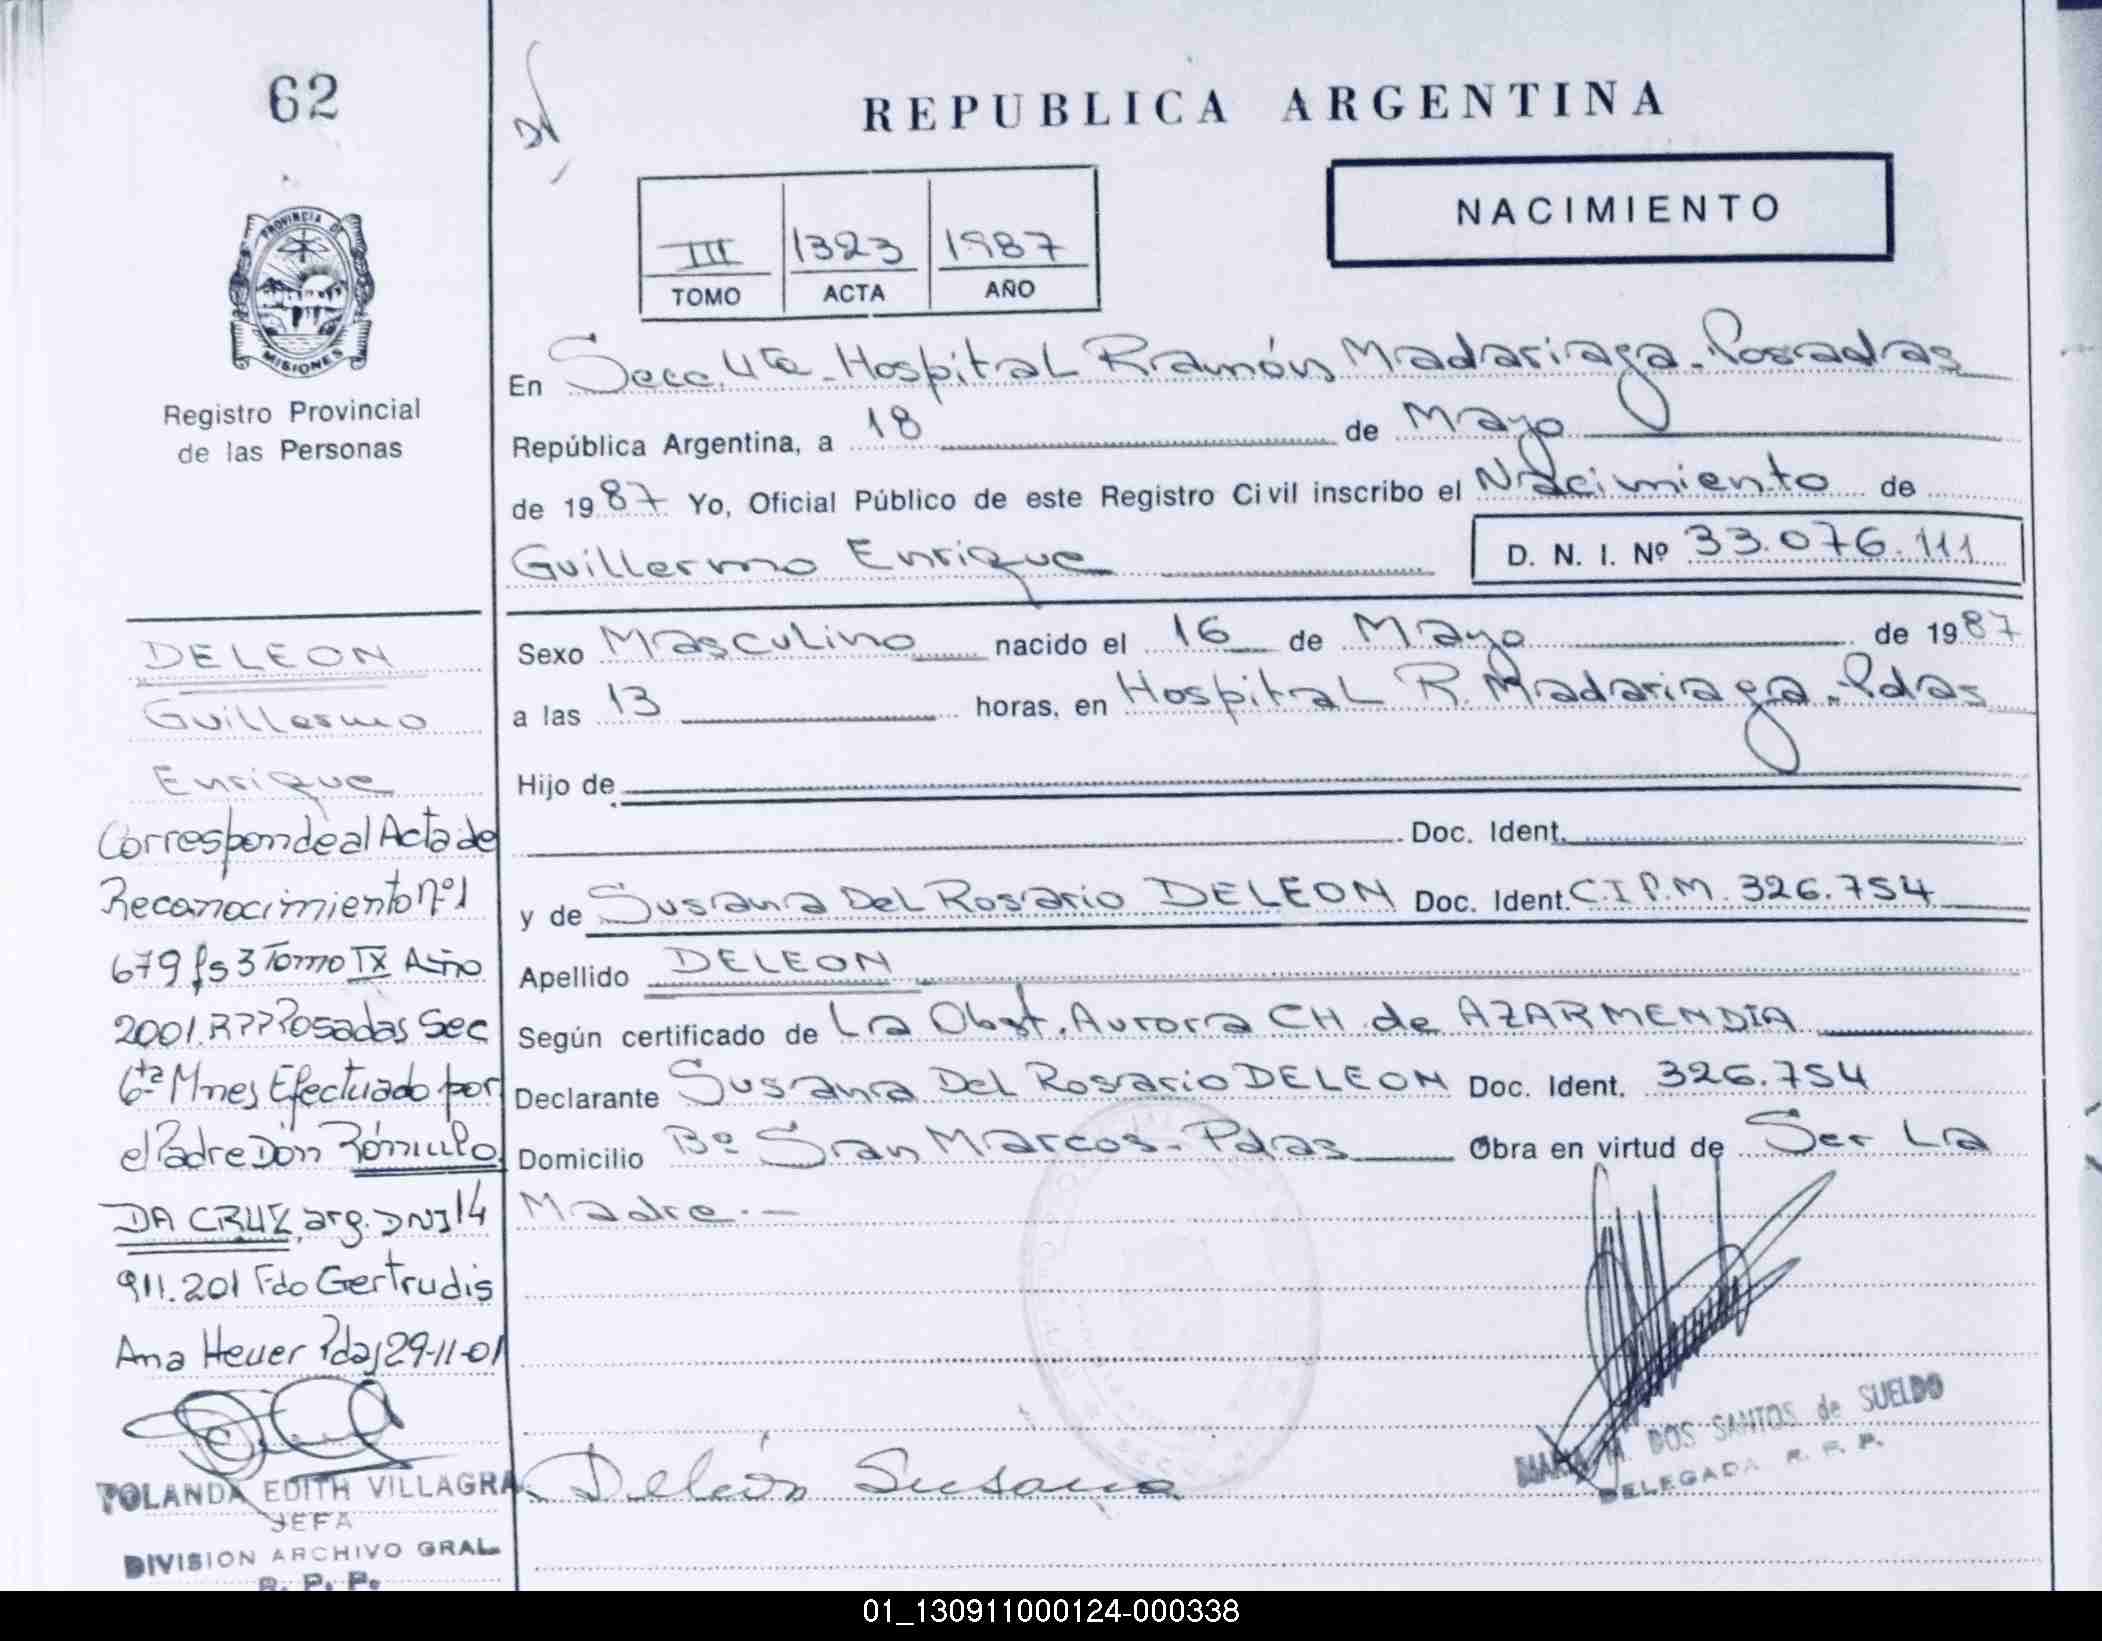 62
PROVINCIA DE
MISIONES
Registro Provincial
de las Personas
DELEON
Guillermo
Enrique
Corresponde al Acta de
Reconocimiento nº 1
679 fs 3 Tomo IX Año
2001. R P P Posadas Sec
6ta Mnes Efectuado por
el Padre Don Rómulo
DA CRUZ, arg. DNI 14
911.201 Fdo Gertrudis
Ana Heuer Pdas 29-11-01
YOLANDA EDITH VILLAGRA
JEFA
DIVISION ARCHIVO GRAL
R. P. P.
REPUBLICA ARGENTINA
III 1323 1987
TOMO ACTA AÑO
NACIMIENTO
En Secc. 4ta - Hospital Ramón Madariaga - Posadas
República Argentina, a 18 de Mayo
de 1987 Yo, Oficial Público de este Registro Civil inscribo el Nacimiento de
Guillermo Enrique D. N. I. Nº 33.076.111
Sexo Masculino nacido el 16 de Mayo de 1987
a las 13 horas, en Hospital R. Madariaga - Pdas
Hijo de
Doc. Ident.
y de Susana Del Rosario DELEON Doc. Ident. C.I.P.M. 326.754
Apellido DELEON
Según certificado de La Obst. Aurora CH de AZARMENDIA
Declarante Susana Del Rosario DELEON Doc. Ident. 326.754
Domicilio Bº San Marcos - Pdas Obra en virtud de Ser La
Madre.-
Deleón Susana
M. DOS SANTOS de SUELDO
DELEGADA R. P. P.
01_130911000124-000338